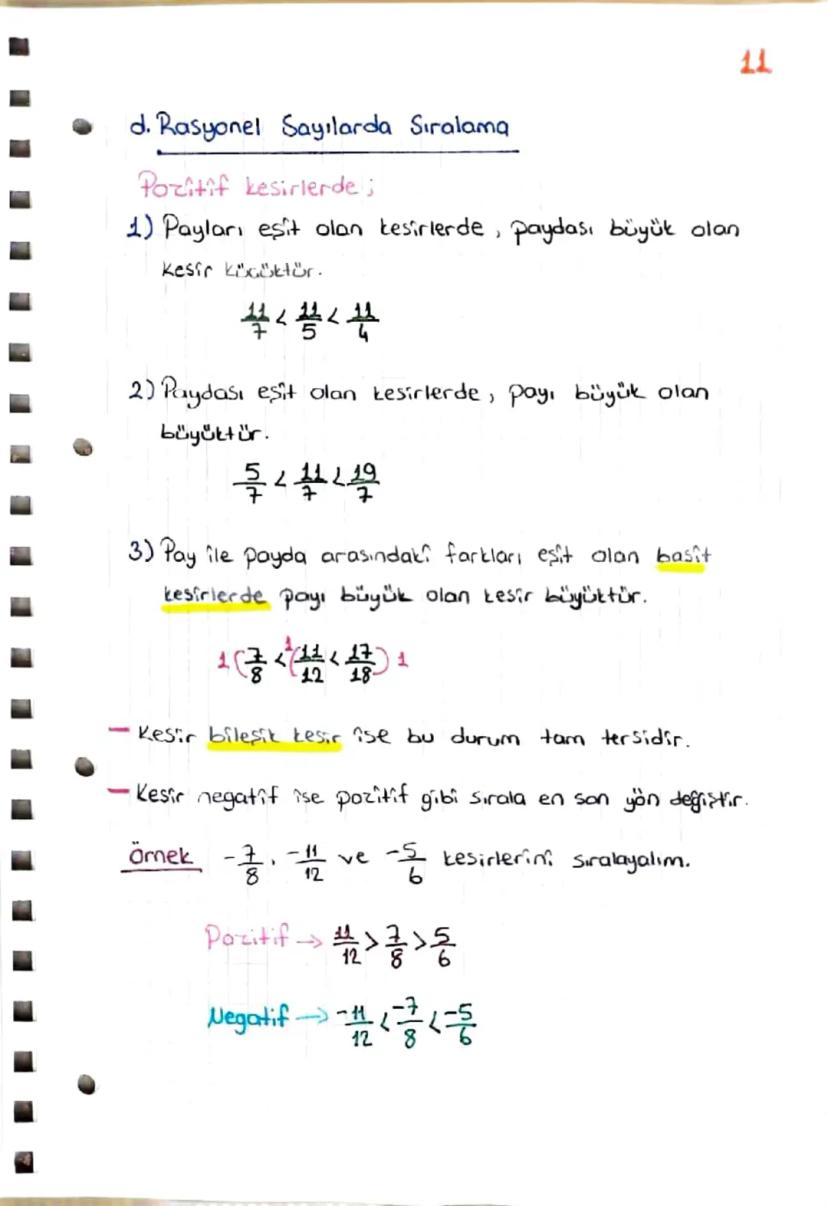 11
d. Rasyonel Sayılarda Sıralama
Pozitif kesirlerde ;
1) Payları eşit olan kesirlerde , paydası büyük olan
kesir küçüktür.
11/7 < 11/5 < 11/4
2) Paydası eşit olan kesirlerde , payı büyük olan
büyüktür.
5/7 < 11/7 < 19/7
3) Pay ile payda arasındaki farkları eşit olan basit
kesirlerde payı büyük olan kesir büyüktür.
1 ( 7/8 < 1 ( 11/12 < 17/18 ) 1
- Kesir bileşik kesir ise bu durum tam tersidir.
- Kesir negatif ise pozitif gibi sırala en son yön değiştir.
Örnek -7/8 , -11/12 ve -5/6 kesirlerini sıralayalım.
Pozitif → 11/12 > 7/8 > 5/6
Negatif → -11/12 < -7/8 < -5/6